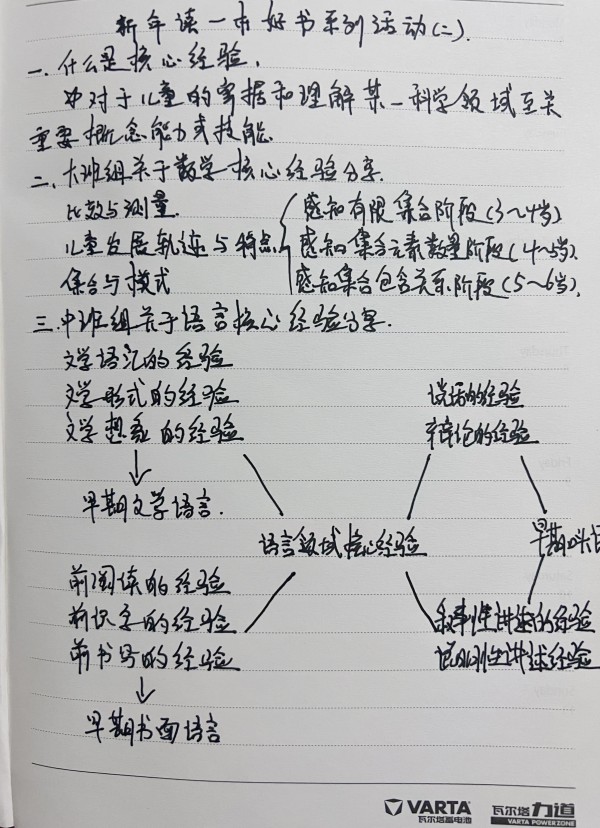 新年读一本好书系列活动(二).
一.什么是核心经验.
对于儿童的掌握和理解某一科学领域至关
重要概念能力或技能.
二.大班组关于数学核心经验分享.
比较与测量. 感知有限集合阶段(3~4岁)
儿童发展轨迹与特点 感知集合元素数量阶段(4~5岁).
集合与模式 感知集合包含关系阶段(5~6岁).
三.中班组关于语言核心经验分享.
文学语汇的经验
文学形式的经验 谈话的经验
文学想象的经验 辩论的经验
早期文学语言.
语言领域核心经验 早期口头语
前阅读的经验
前识字的经验 叙事性讲述的经验
前书写的经验 说明性讲述经验
早期书面语言
VARTA 瓦尔塔力道
瓦尔塔蓄电池 VARTA POWERZONE